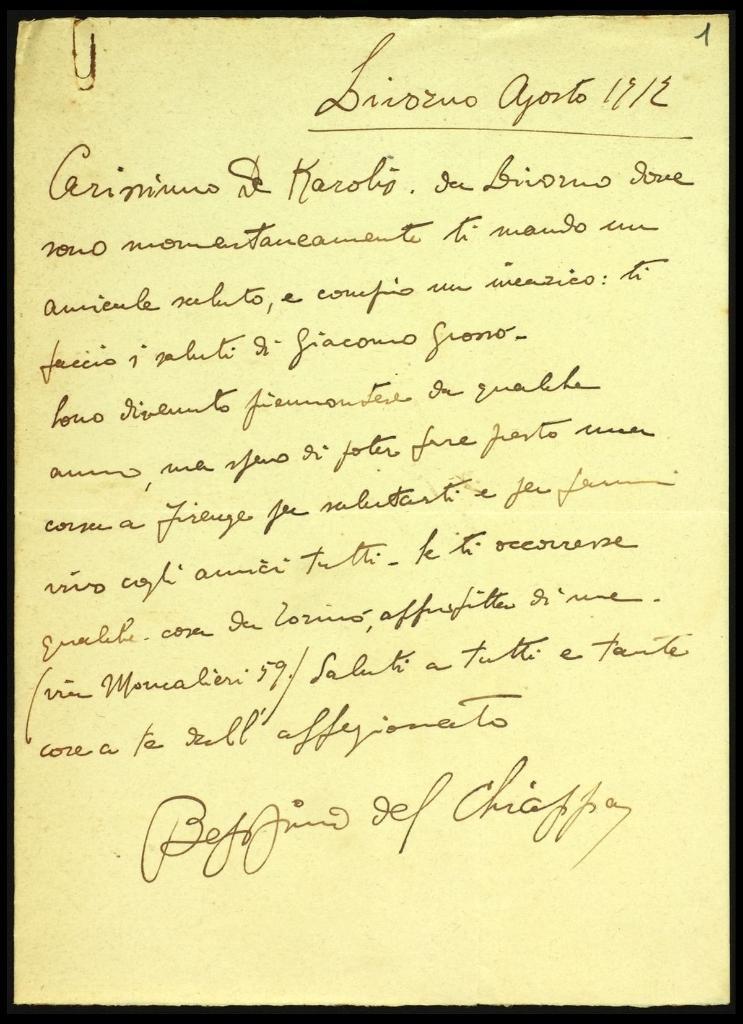 1
Livorno Agosto 1912
Carissimo De Karolis. da Livorno dove
sono momentaneamente ti mando un
amicale saluto, e compio un incarico: ti
faccio i saluti di Giacomo Grosso-
Sono divenuto piemontese da qualche
anno, ma spero di poter fare presto una
corsa a Firenze per salutarti e per farmi
vivo cogli amici tutti - Se ti occorresse
qualche cosa da Torino, approfitta di me.
(via Moncalieri 59) Saluti a tutti e tante
cose a te dall' affezionato
Beppino del Chiappa